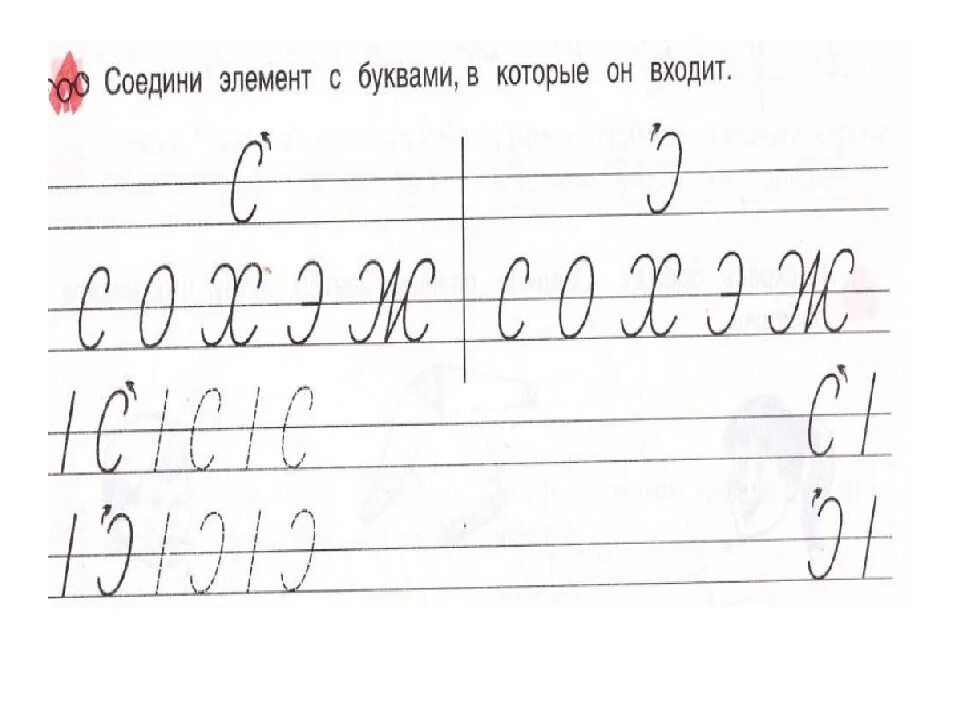 Соедини элемент с буквами, в которые он входит.
С Ɔ
С О Х Э Ж С О Х Э Ж
| С | С | С С |
| Ɔ | Ɔ | Ɔ Ɔ |